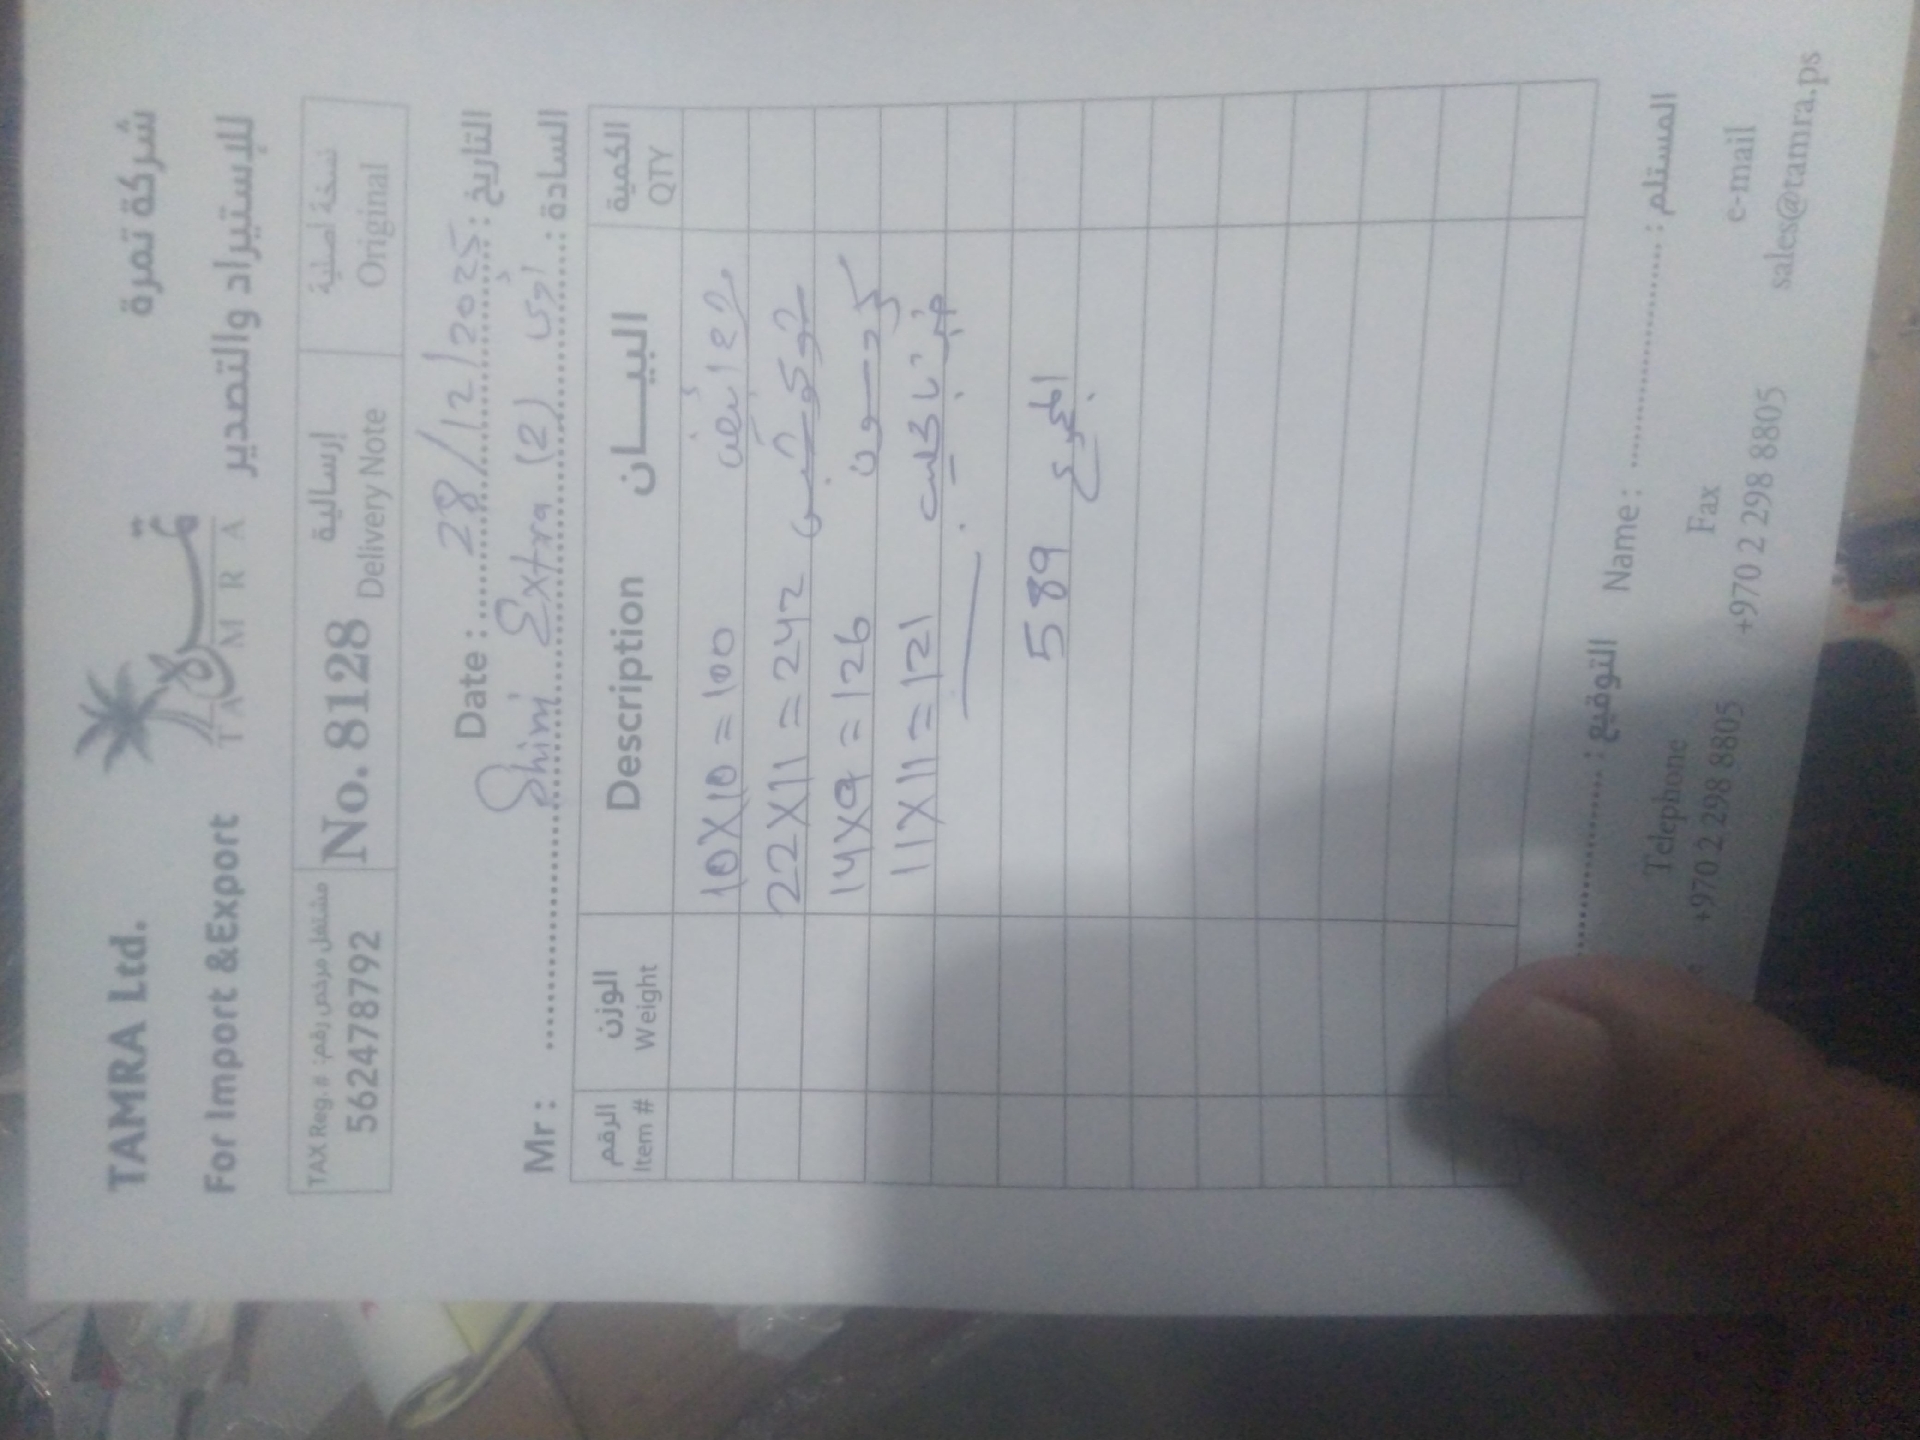 TAMRA Ltd. شركة تمرة
For Import &Export للإستيراد والتصدير
TAMRA
TAX Reg. #: مشتغل مرخص رقم
562478792
No. 8128
إرسالية
Delivery Note
نسخة أصلية
Original
Date : 28/12/2025 التاريخ :
Mr : Shini Extra (2) السادة :
الرقم Item # الوزن Weight Description البيـــان الكمية QTY
10X10=100
22X11=242
14X9=126
11X11=121
589 المجموع
التوقيع : Name : المستلم :
Telephone Fax e-mail
+970 2 298 8805 +970 2 298 8805 sales@tamra.ps